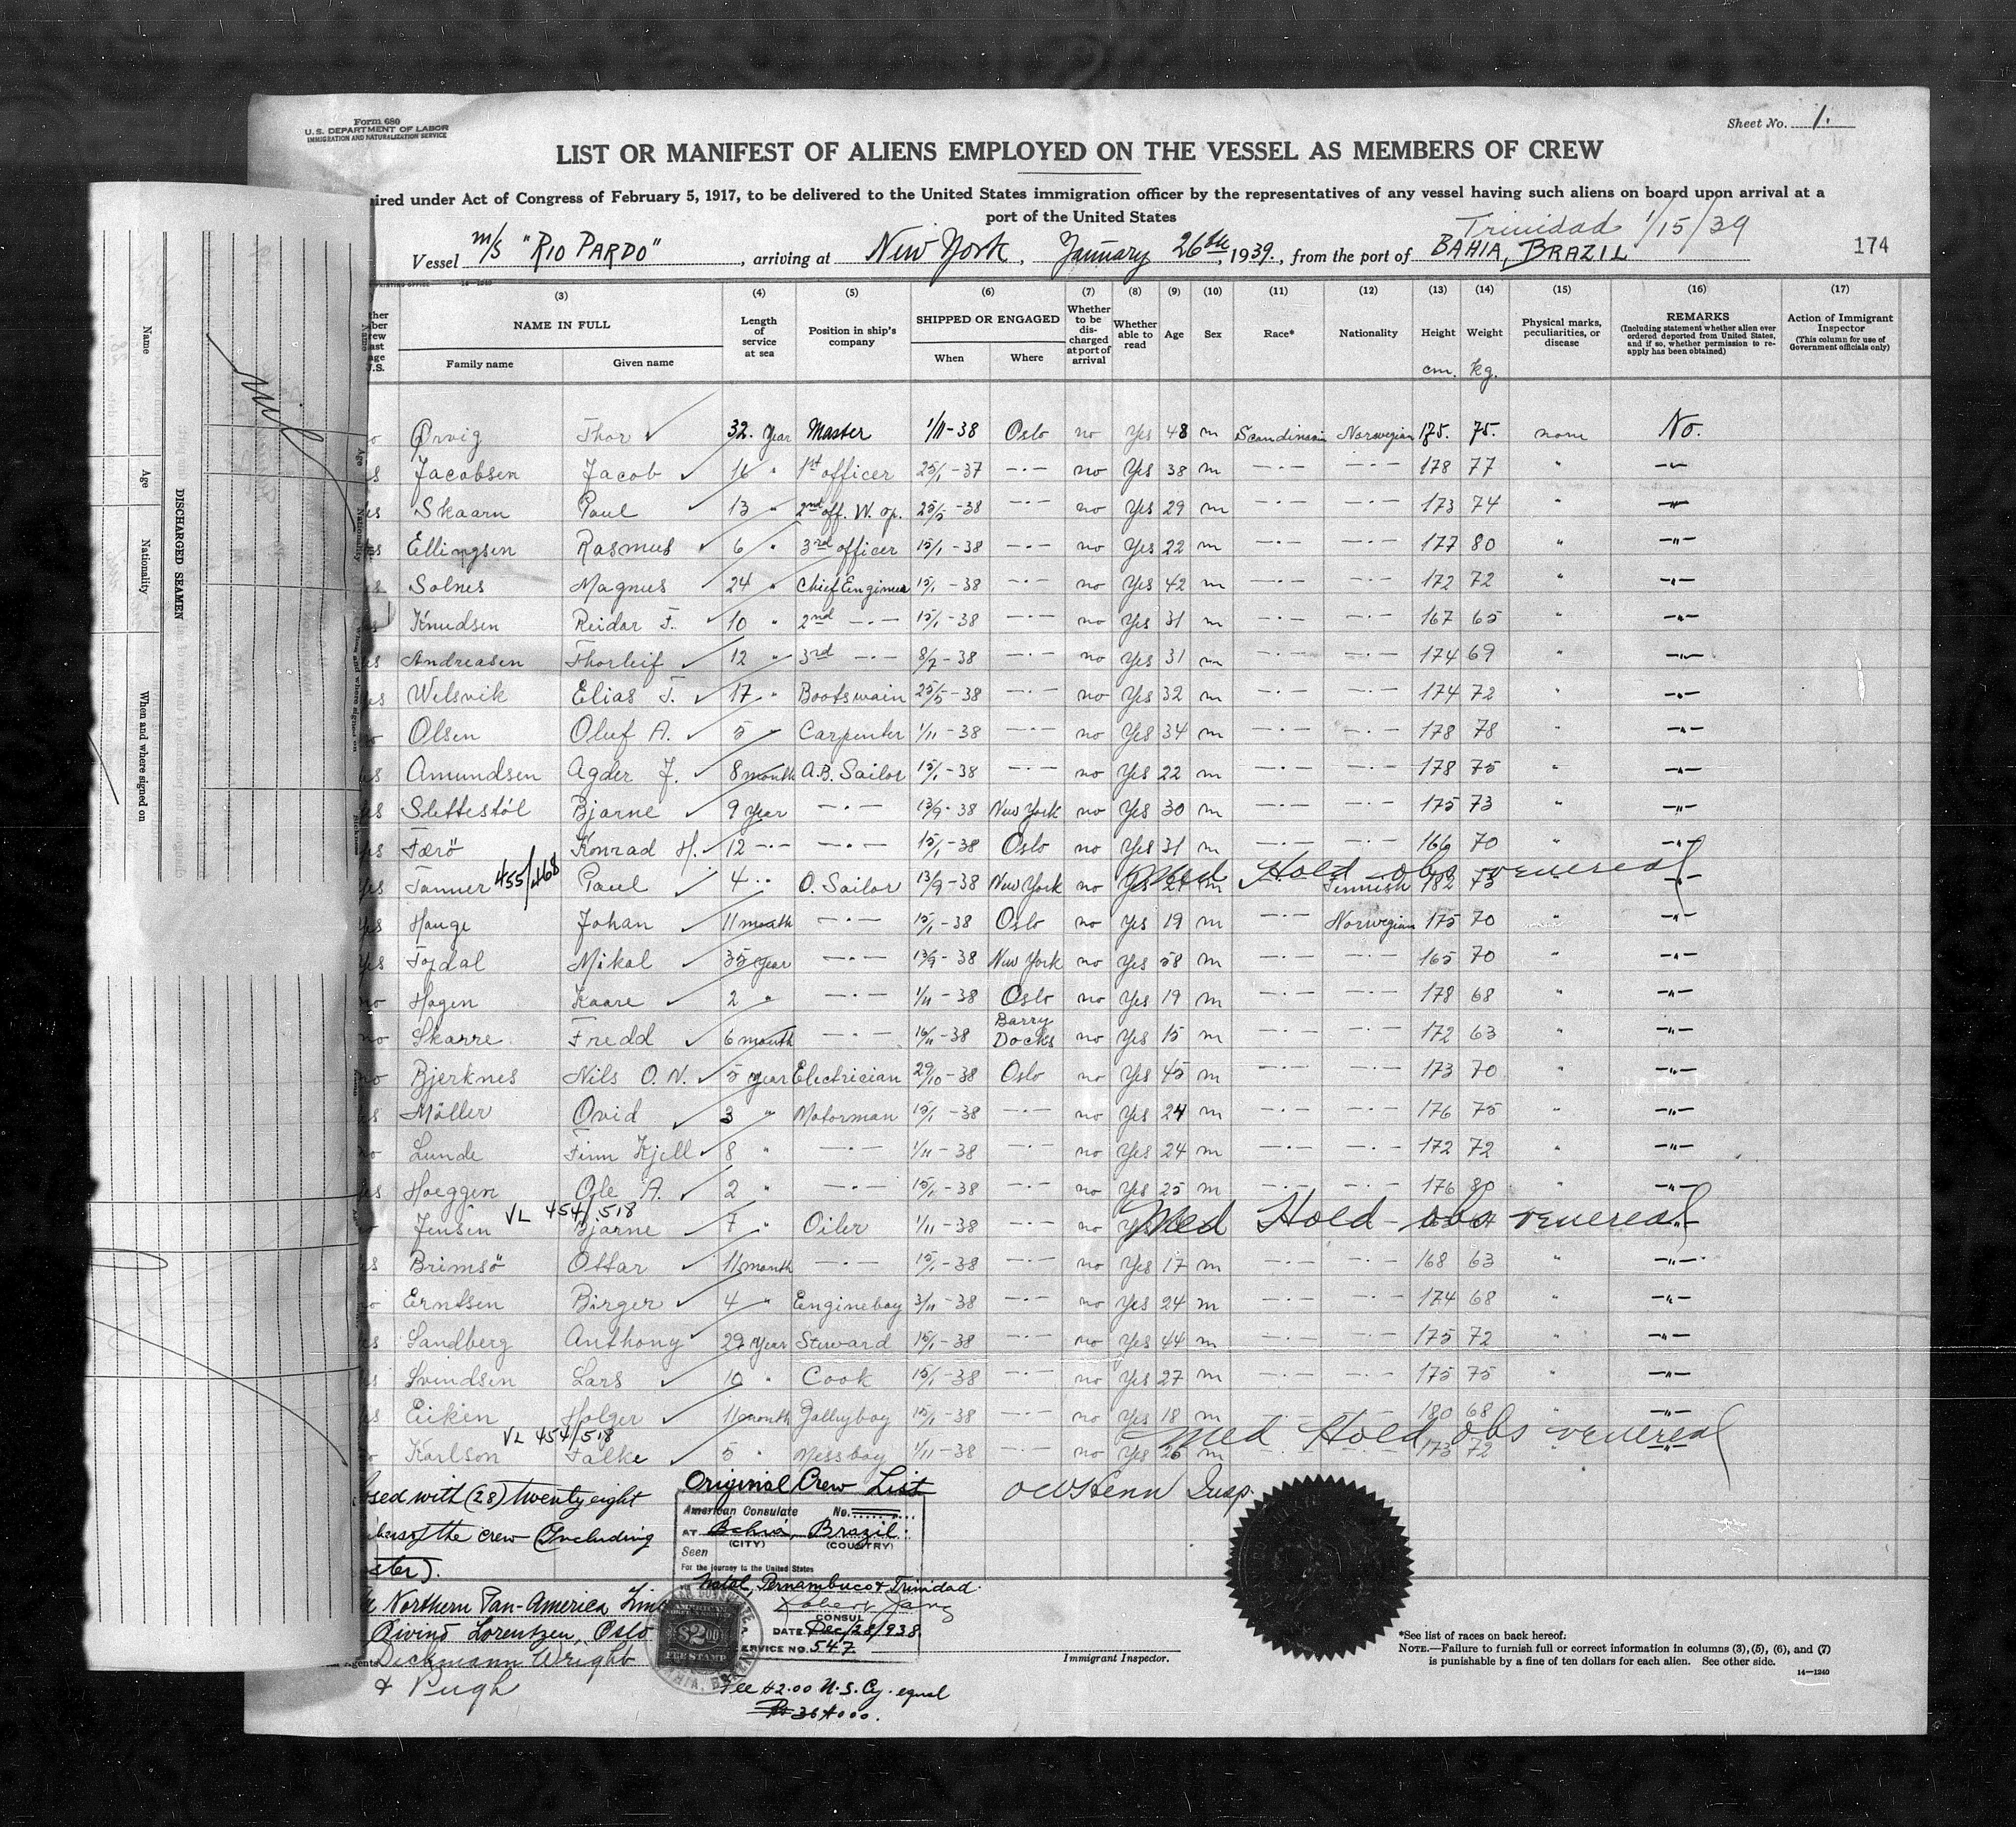 Form 680
U.S. DEPARTMENT OF LABOR
IMMIGRATION AND NATURALIZATION SERVICE
Sheet No. 1.
LIST OR MANIFEST OF ALIENS EMPLOYED ON THE VESSEL AS MEMBERS OF CREW
ired under Act of Congress of February 5, 1917, to be delivered to the United States immigration officer by the representatives of any vessel having such aliens on board upon arrival at a
port of the United States
Trinidad 1/15/39
Vessel m/s "RIO PARDO", arriving at New York, January 26th, 1939., from the port of BAHIA, BRAZIL 174
(3) (4) (5) (6) (7) (8) (9) (10) (11) (12) (13) (14) (15) (16) (17)
NAME IN FULL Length of service at sea Position in ship's company SHIPPED OR ENGAGED Whether to be discharged at port of arrival Whether able to read Age Sex Race* Nationality Height Weight Physical marks, peculiarities, or disease REMARKS (Including statement whether alien ever ordered deported from United States, and if so, whether permission to reapply has been obtained) Action of Immigrant Inspector (This column for use of Government officials only)
Family name Given name When Where cm. kg.
Ørvig Thor 32. Year Master 1/11-38 Oslo no Yes 48 m Scandinavin Norwegian 175. 75. none No.
Jacobsen Jacob 16 " 1st officer 25/1-37 -·- no Yes 38 m -·- -·- 178 77 " -"-
Skaarn Paul 13 " 2nd off. W. op. 25/5-38 -·- no Yes 29 m -·- -·- 173 74 " -"-
Ellingsen Rasmus 6 " 3rd officer 15/1-38 -·- no Yes 22 m -·- -·- 177 80 " -"-
Solnes Magnus 24 " Chief Engineer 15/1-38 -·- no Yes 42 m -·- -·- 172 72 " -"-
Knudsen Reidar F. 10 " 2nd -·- 15/1-38 -·- no Yes 31 m -·- -·- 167 65 " -"-
Andreasen Thorleif 12 " 3rd -·- 8/7-38 -·- no Yes 31 m -·- -·- 174 69 " -"-
Welsvik Elias T. 17 " Bootswain 25/5-38 -·- no Yes 32 m -·- -·- 174 72 " -"-
Olsen Oluf A. 5 " Carpenter 1/11-38 -·- no Yes 34 m -·- -·- 178 78 " -"-
Amundsen Agder F. 8 month A.B. Sailor 15/1-38 -·- no Yes 22 m -·- -·- 178 75 " -"-
Slettestöl Bjarne 9 Year -·- 13/9-38 New York no Yes 30 m -·- -·- 175 73 " -"-
Færö Konrad H. 12 -·- -·- 15/1-38 Oslo no Yes 31 m -·- -·- 166 70 " -"-
Tanner 455/468 Paul 4 " O. Sailor 13/9-38 New York no Yes m Med Hold obs venereal 182 73
Hauge Johan 11 month -·- 15/1-38 Oslo no Yes 19 m -·- Norwegian 175 70 " -"-
Topdal Mikal 35 Year -·- 13/9-38 New York no Yes 58 m 165 70 " -"-
Hagen Kaare 2 " -·- 1/11-38 Oslo no Yes 19 m -·- -·- 178 68 " -"-
Skarre Fredd 6 month -·- 16/11-38 Barry Docks no Yes 15 m -·- -·- 172 63 " -"-
Bjerknes Nils O. N. 5 year Electrician 29/10-38 Oslo no Yes 45 m -·- -·- 173 70 " -"-
Möller Ovid 3 " Motorman 15/1-38 -·- no Yes 24 m -·- -·- 176 75 " -"-
Lunde Finn Kjell 8 " -·- 1/11-38 -·- no Yes 24 m -·- -·- 172 72 " -"-
Hoeggen Ole A. 2 " -·- 15/1-38 -·- no Yes 25 m -·- -·- 176 80 " -"-
Jensen VL 454/518 Bjarne 7 " Oiler 1/11-38 -·- no Med Hold - obs venereal
Brimsö Ottar 11 month -·- 15/1-38 -·- no Yes 17 m -·- -·- 168 63 " -"-
Erntsen Birger 4 " Engineboy 3/11-38 -·- no Yes 24 m -·- -·- 174 68 " -"-
Sandberg Anthony 29 Year Steward 15/1-38 -·- no Yes 44 m -·- -·- 175 72 " -"-
Svindsen Lars 10 " Cook 15/1-38 -·- no Yes 27 m -·- -·- 175 75 " -"-
Eiken Holger 11 month Galleyboy 15/1-38 -·- no Yes 18 m 180 68 " -"-
Karlson VL 454/518 Falke 5 " Messboy 1/11-38 -·- no Yes 26 m Med Hold obs venereal 173 72
osed with (28) twenty eight
bers of the crew (Including
ster).
Northern Pan-America Line
Øivind Lorentzen, Oslo
Dickmann Wright
& Pugh
Original Crew List
American Consulate No.
AT Bahia, Brazil.
(CITY) (COUNTRY)
Seen
For the journey to the United States
Natal, Pernambuco & Trinidad.
CONSUL
DATE Dec/28/938
SERVICE NO. 547
AMERICAN
$2.00
FEE STAMP
Fee $2.00 U.S. Cy. equal
Rs 36$000.
Insp.
Immigrant Inspector.
*See list of races on back hereof.
NOTE.—Failure to furnish full or correct information in columns (3), (5), (6), and (7)
is punishable by a fine of ten dollars for each alien. See other side.
14—1240
DISCHARGED SEAMEN
Name Age Nationality When and where signed on